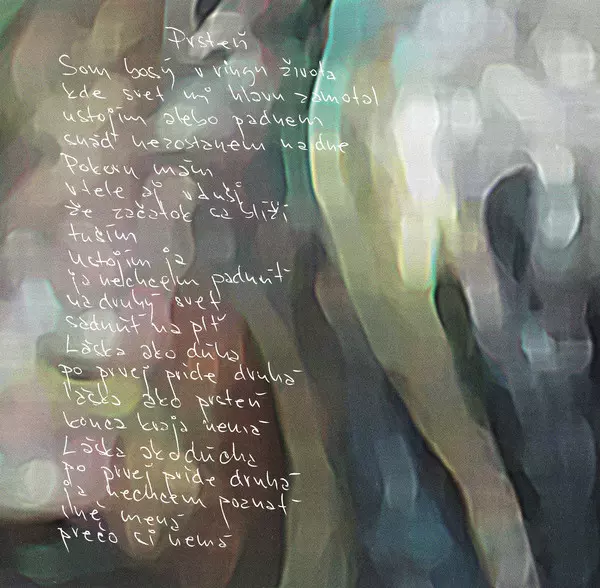 Prsteň
Som bosý v ringu života
kde svet mi hlavu zamotal
ustojím alebo padnem
snáď nezostanem na dne
Pokoru mám
v tele aj v duši
že začiatok sa blíži
tuším
Ustojím ja
ja nechcem padnúť
na druhý svet
sadnúť na plť
Láska ako dúha
po prvej príde druhá
láska ako prsteň
konca kraja nemá
Láska ako dúcha
po prvej príde druhá
ja nechcem poznať
iné mená
prečo či nemá